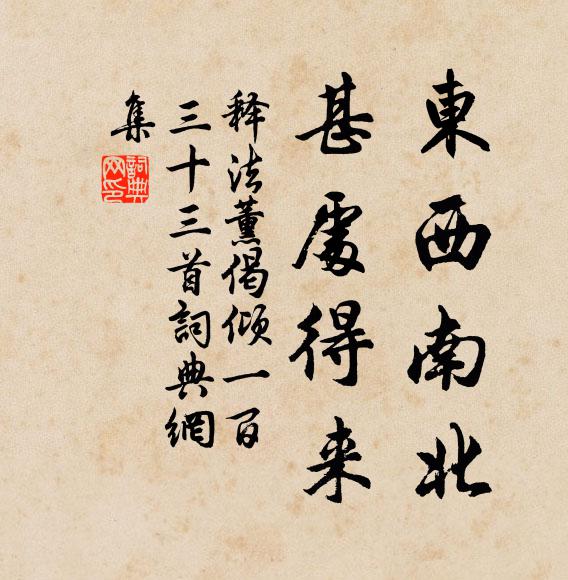 東西南北
甚處得来
释法薰偈倾一百
三十三首詞典網
集
詞典网印